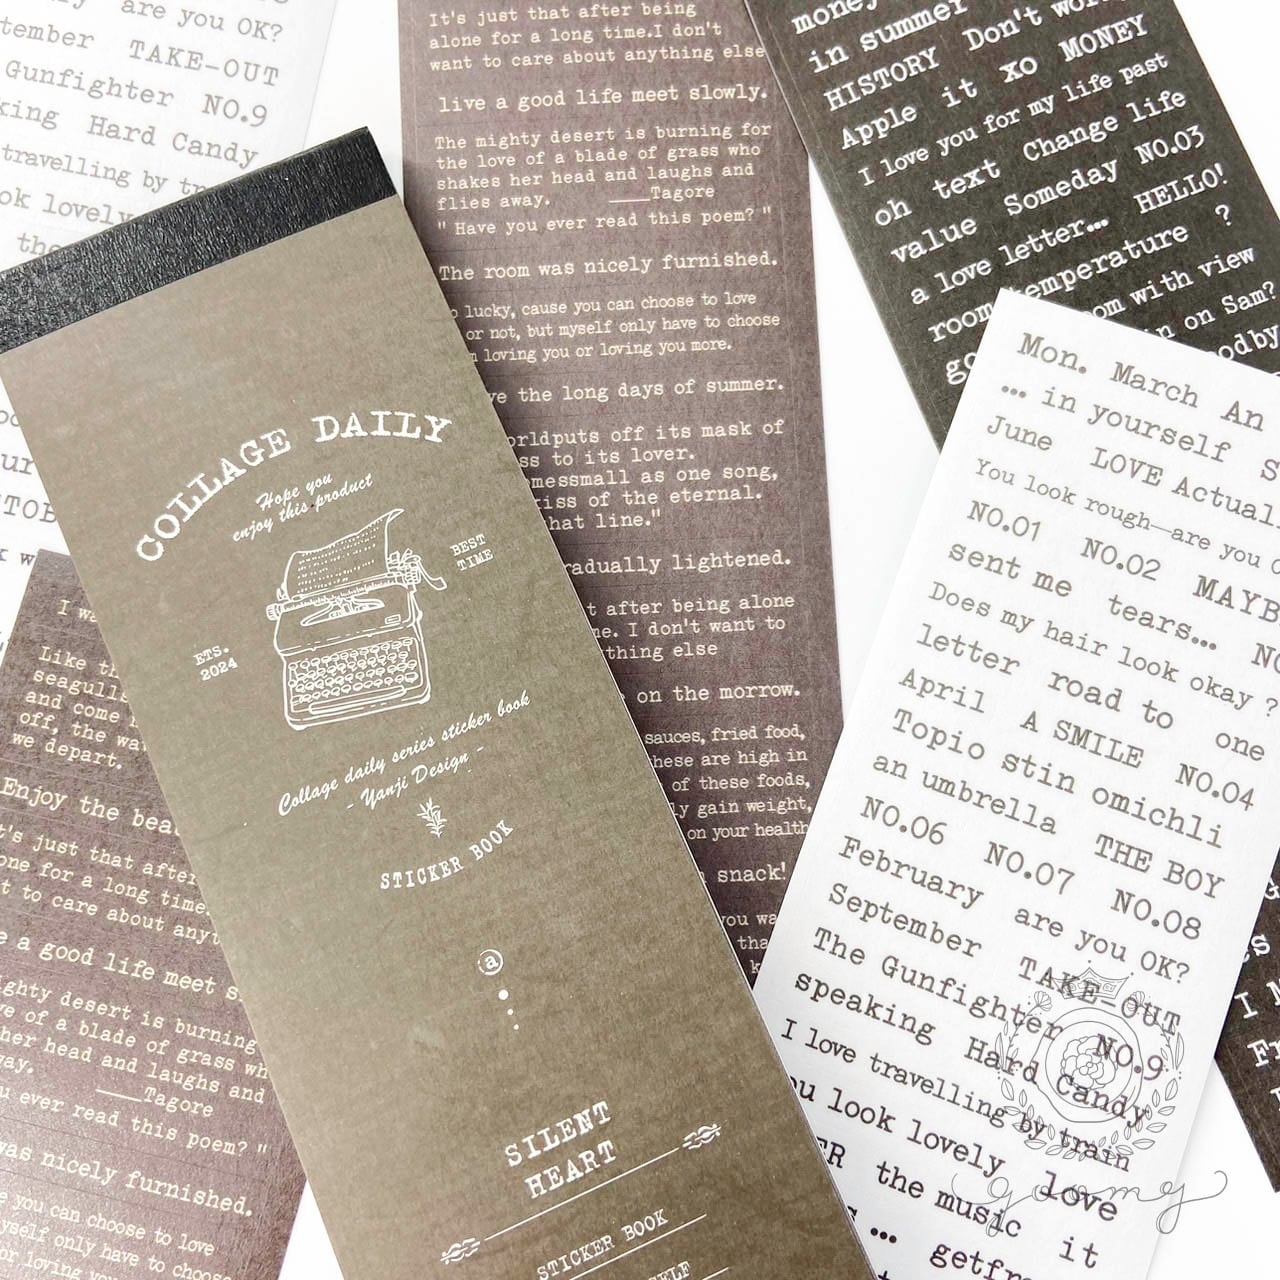 are you OK?
tember TAKE-OUT
Gunfighter NO.9
king Hard Candy
travelling by
ok lovely
the
COLLAGE DAILY
Hope you
enjoy this product
BEST
TIME
ETS.
2024
Collage daily series sticker book
- Yanji Design -
STICKER BOOK
a
SILENT
HEART
STICKER BOOK
It's just that after being
alone for a long time.I don't
want to care about anything else
live a good life meet slowly.
The mighty desert is burning for
the love of a blade of grass who
shakes her head and laughs and
flies away. ____Tagore
" Have you ever read this poem? "
The room was nicely furnished.
lucky, cause you can choose to love
or not, but myself only have to choose
loving you or loving you more.
ve the long days of summer.
orldputs off its mask of
ss to its lover.
omessmall as one song,
kiss of the eternal.
hat line."
radually lightened.
t after being alone
me. I don't want to
ything else
on the morrow.
sauces, fried food,
hese are high in
of these foods,
ly gain weight,
on your health
snack!
you wa
tha
money
in summer
HISTORY Don't wor
Apple it xo MONEY
I love you for my life past
oh text Change life
value Someday NO.03
a love letter… HELLO!
room temperature ?
go om with view
in on Sam?
oodby
Mon. March An
… in yourself S
June LOVE Actual
You look rough—are you O
NO.01 NO.02 MAYB
sent me tears… NO
Does my hair look okay ?
letter road to one
April A SMILE NO.04
Topio stin omichli
an umbrella THE BOY
NO.06 NO.07 NO.08
February are you OK?
September TAKE-OUT
The Gunfighter NO.9
speaking Hard Candy
I love travelling by train
ou look lovely love
ER the music it
… getfre
goomy
I wa
Like th
seagulls
and come
off, the wa
we depart.
Enjoy the beau
t's just that after
one for a long time.
t to care about anyt
e a good life meet s
ighty desert is burning
ve of a blade of grass wh
her head and laughs and
way. ____Tagore
u ever read this poem? "
was nicely furnished.
e you can choose to love
yself only have to choose
or loving you